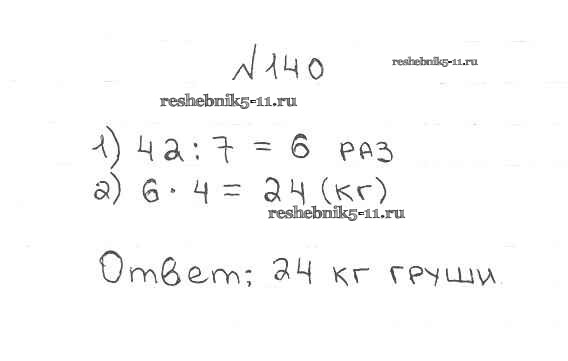 №140
reshebnik5-11.ru
reshebnik5-11.ru
1) 42 : 7 = 6 РАЗ
2) 6 · 4 = 24 (кг)
reshebnik5-11.ru
Ответ: 24 кг груши